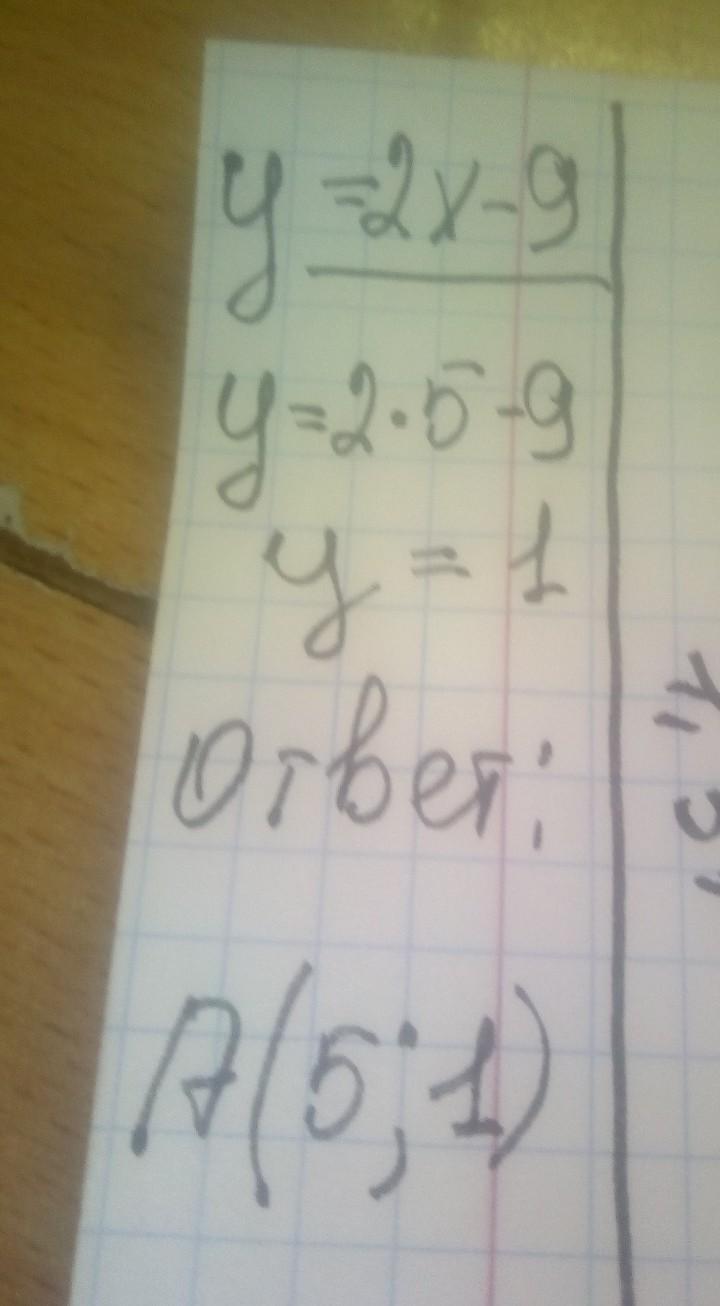 y = 2x - 9
y = 2 · 5 - 9
y = 1
Ответ:
A(5; 1)